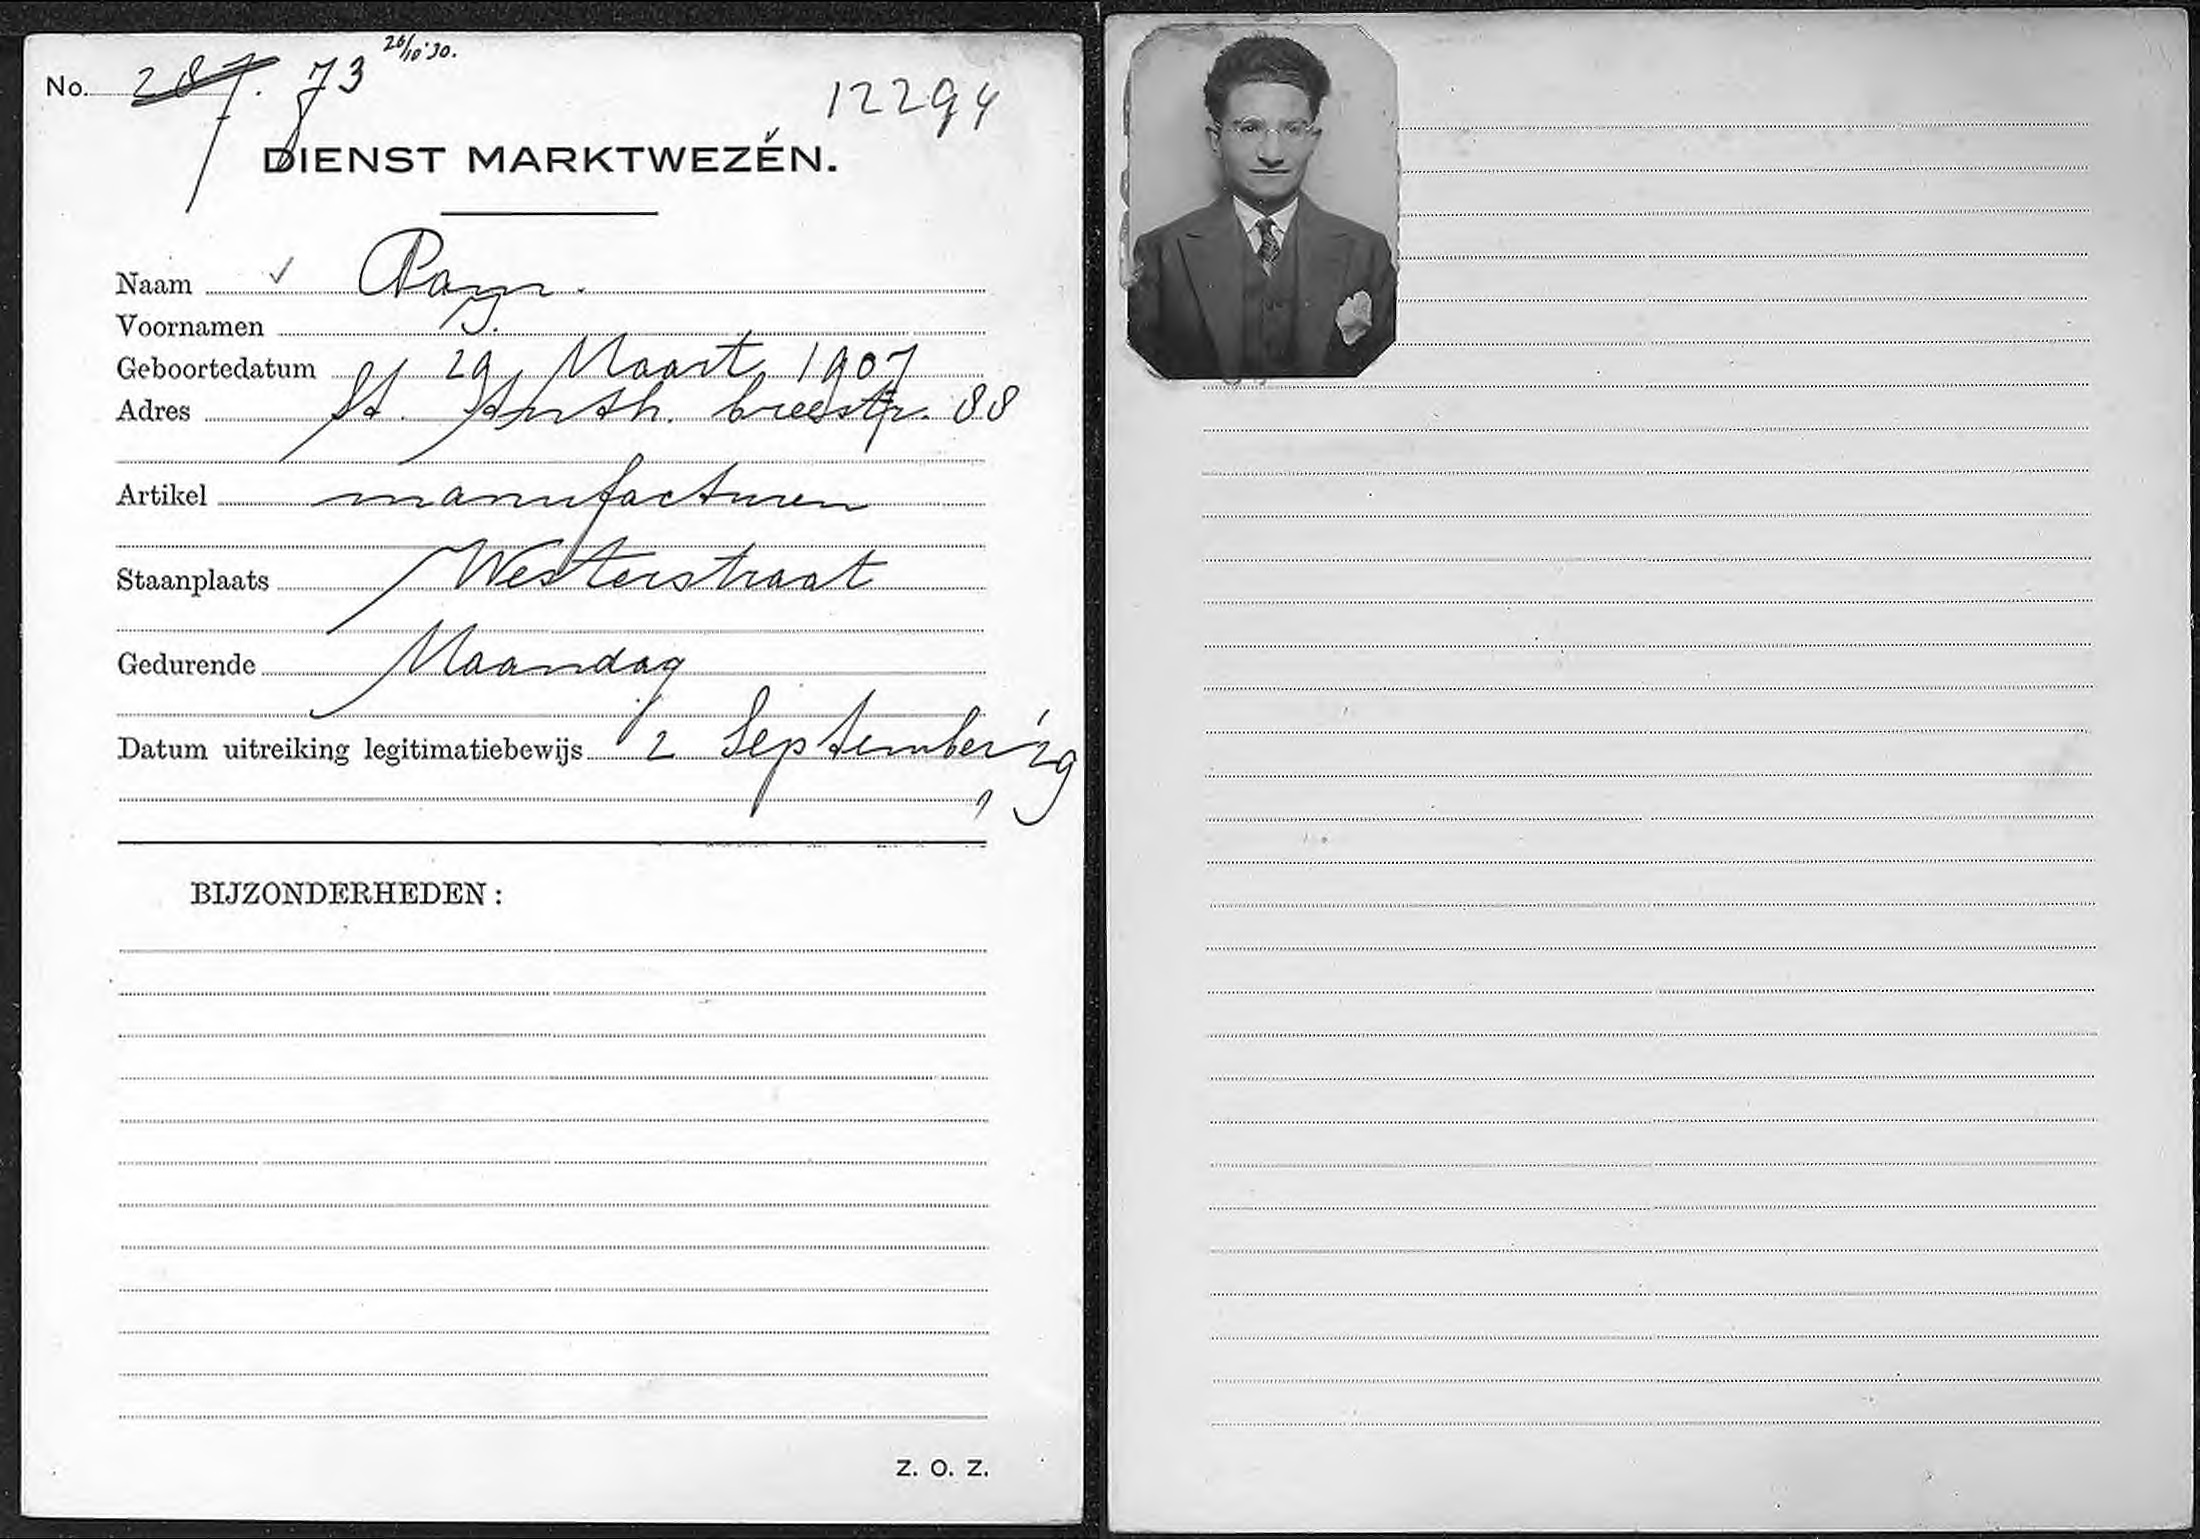 No. 287. 73 26/10 '30.
12294
DIENST MARKTWEZEN.
Naam
Voornamen J.
Geboortedatum 29 Maart 1907
Adres St. Anth. breestr. 88
Artikel manufacturen
Staanplaats Westerstraat
Gedurende Maandag
Datum uitreiking legitimatiebewijs 2 September '29
BIJZONDERHEDEN:
Z. O. Z.